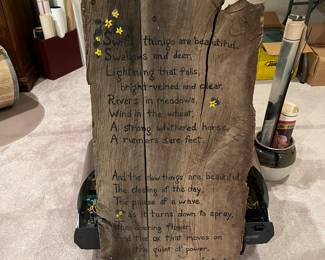 Swift things are beautiful
Swallows and deer,
Lightning that falls,
bright-veined and clear,
Rivers in meadows,
Wind in the wheat,
A strong withered horse,
A runners sure feet.
And the slow things are beautiful
The closing of the day,
The pause of a wave
as it turns down to spray,
The opening flower,
And the ox that moves on
the quiet of power.